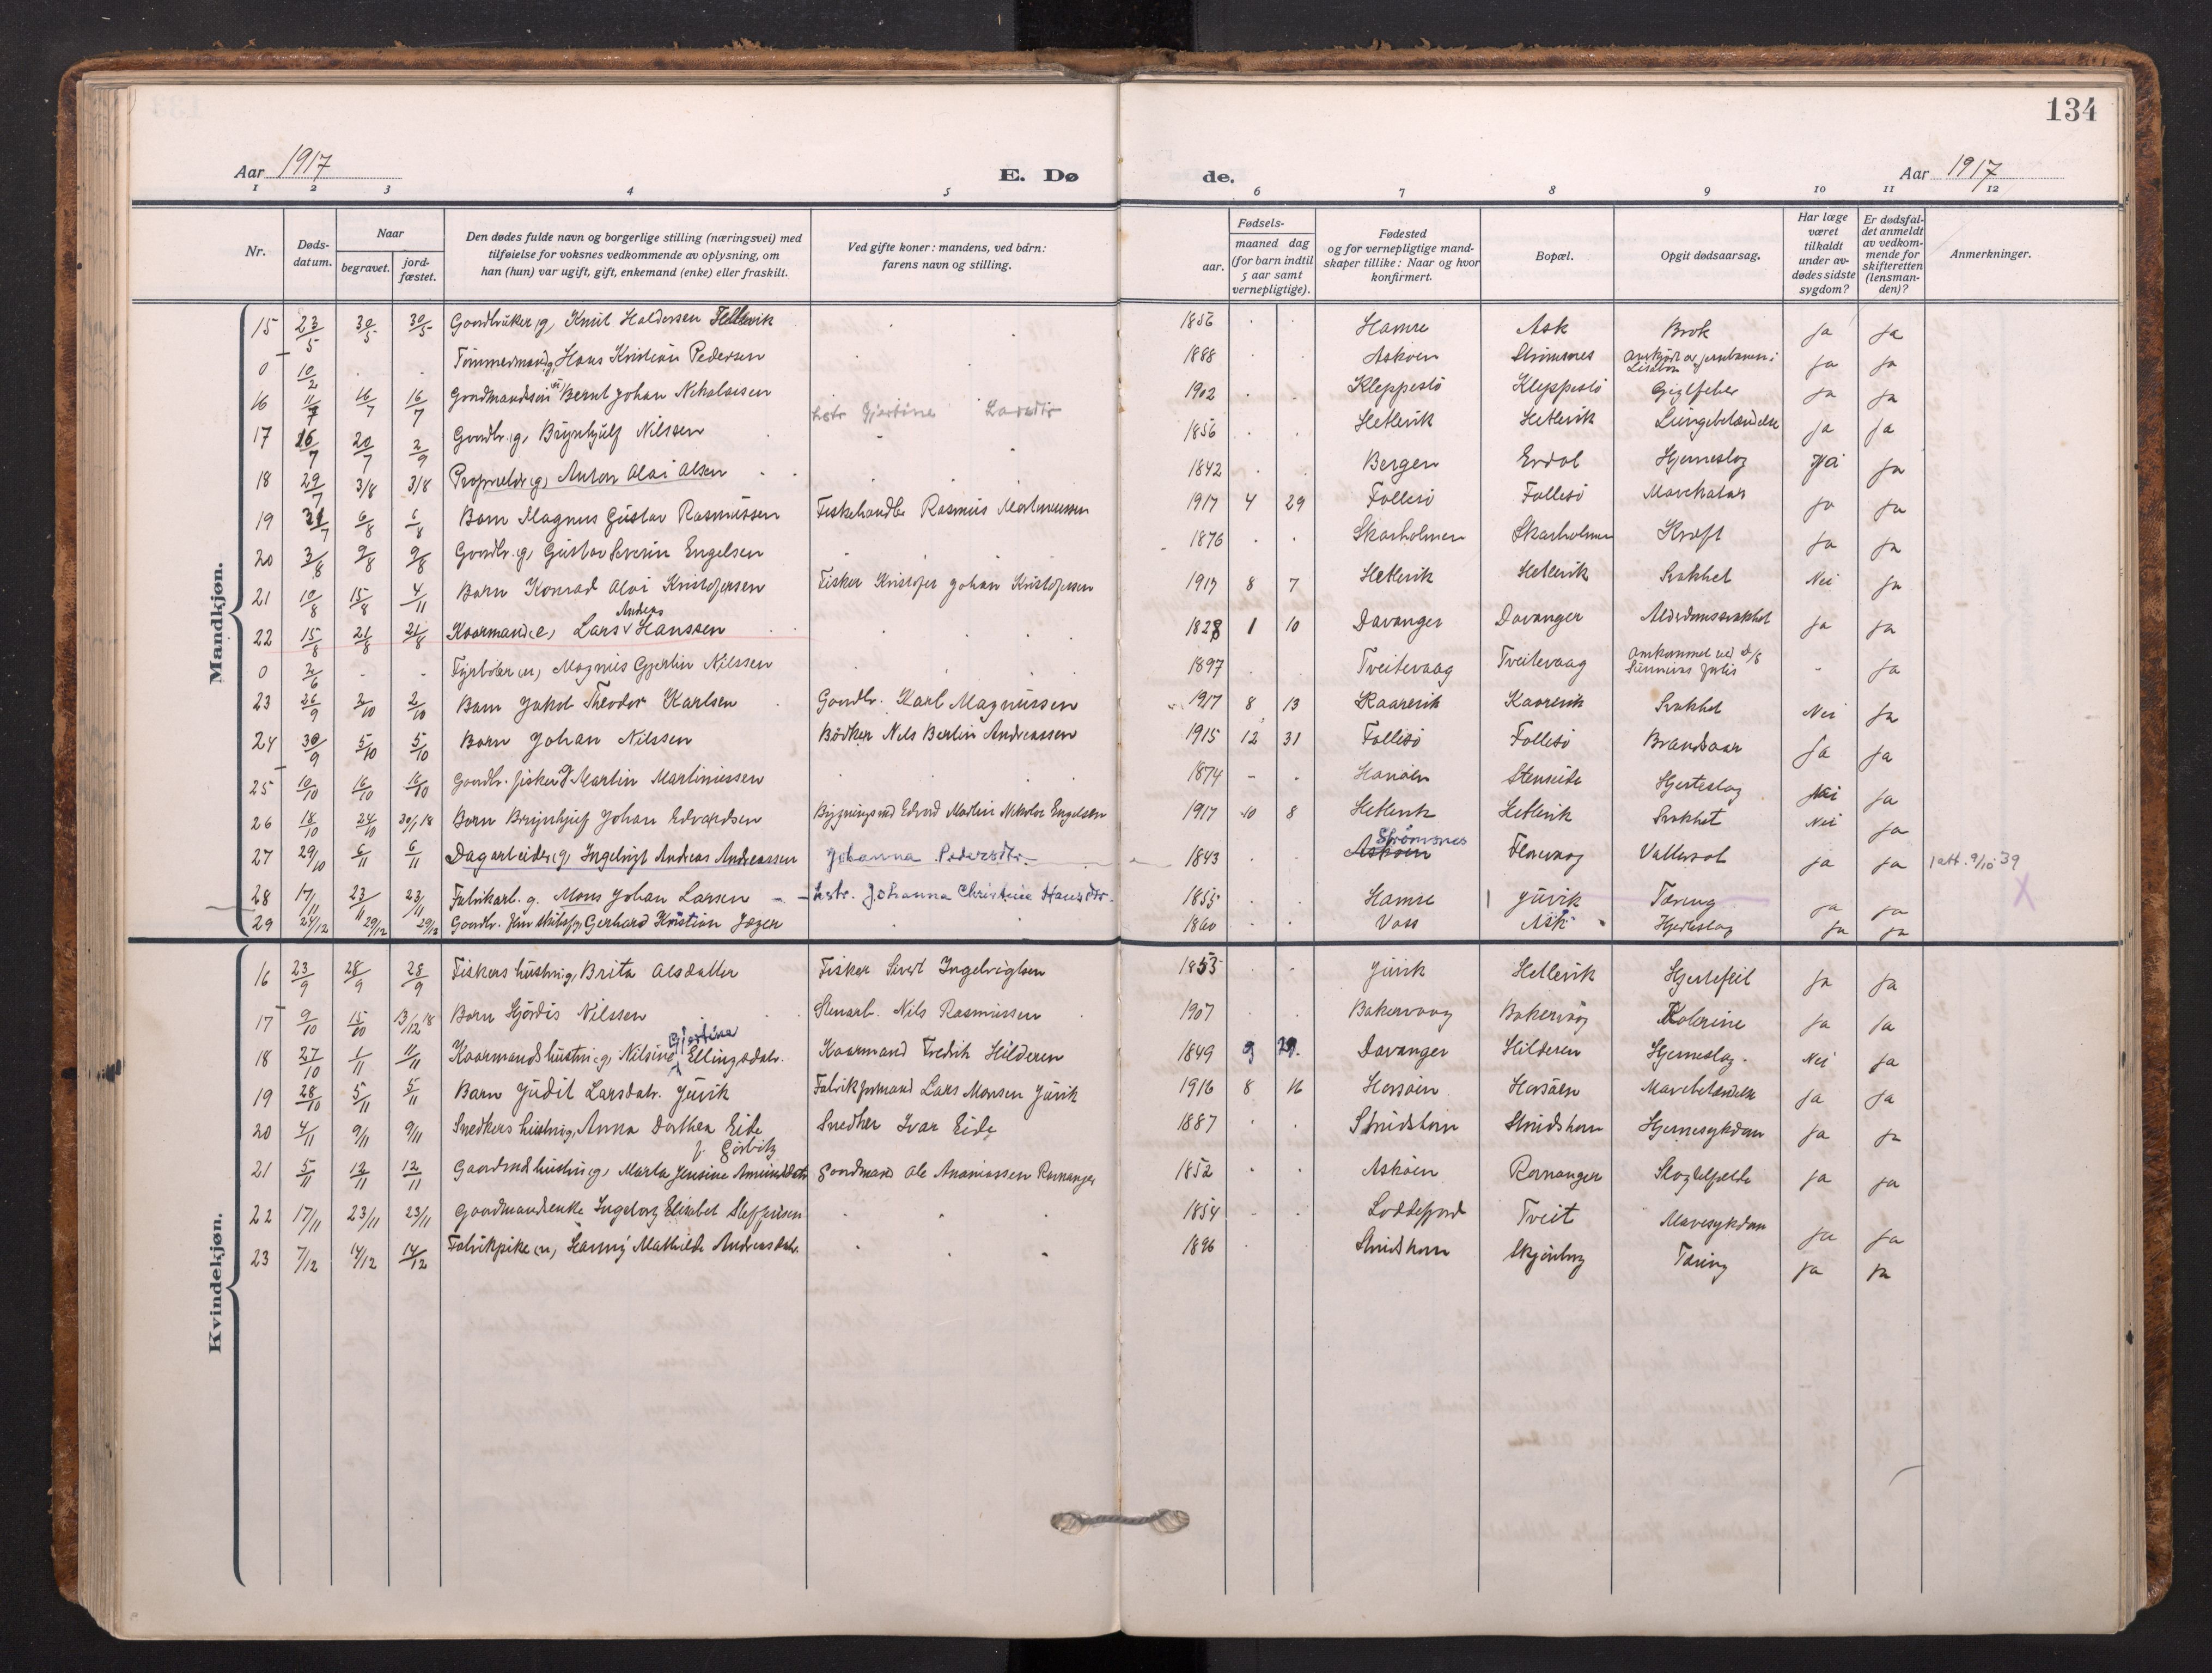 134
Aar 1917 E. Dø de. Aar 1917
1 2 3 4 5 6 7 8 9 10 11 12
Nr. Døds-datum. Naar begravet. jord-fæstet. Den dødes fulde navn og borgerlige stilling (næringsvei) med tilføielse for voksnes vedkommende av oplysning, om han (hun) var ugift, gift, enkemand (enke) eller fraskilt. Ved gifte koner: mandens, ved barn: farens navn og stilling. Fødsels- aar. maaned dag (for barn indtil 5 aar samt vernepligtige). Fødested og for vernepligtige mandskaper tillike: Naar og hvor konfirmert. Bopæl. Opgit dødsaarsag. Har læge været tilkaldt under avdødes sidste sygdom? Er dødsfaldet anmeldt av vedkommende for skifteretten (lensmanden)? Anmerkninger.
Mandkjøn.
15 23/5 30/5 30/5 Gaardbruker (g) Knut Haldorsen Hetlevik 1856 Hamre Ask Brok Ja Ja
0 10/2 Tømmermand (g) Hans Kristian Pedersen 1888 Askøen Strömsnes Ja Ja
16 11/7 16/7 16/7 Bernt Johan Nikolaisen 1902 Kleppestö Kleppestö Gigtfeber Ja Ja
17 16/7 20/7 2/9 Gaardbr. (g) Brynhjulf Nilssen Gjertine Larsdtr 1856 Hetlevik Hetlevik Lungebetændelse Ja Ja
18 29/7 3/8 3/8 Anton Olai Olsen 1842 Bergen Erdal Hjerneslag Ja Ja
19 31/7 6/8 6/8 Barn Magnus Gustav Rasmussen Fiskehandler Rasmus Martinussen 1917 4 29 Follesö Follesö Mavekatar Ja Ja
20 3/8 9/8 9/8 Gaardbr. (g) Gustav Severin Engelsen 1876 Skarholmen Skarholmen Kræft Ja Ja
21 10/8 15/8 4/11 Barn Konrad Olai Kristofersen Fisker Kristofer Johan Kristofersen 1917 8 7 Hetlevik Hetlevik Svakhet Nei Ja
22 15/8 21/8 21/8 Kaarmand (e) Lars Anders Hanssen 1828 1 10 Davanger Davanger Alderdomssvakhet Ja Ja
0 2/6 - - Fyrböter (u) Magnus Gjertin Nilssen 1897 Tveitevaag Tveitevaag Omkommet ved - Ja
23 26/9 2/10 2/10 Barn Jakob Theodor Karlsen Gaardbr. Karl Magnussen 1917 8 13 Kaarevik Kaarevik Svakhet Nei Ja
24 30/9 5/10 5/10 Barn Johan Nilssen Bödker Nils Bertin Andreassen 1915 12 31 Follesö Follesö Brandsaar Ja Ja
25 10/10 16/10 16/10 Gaardbr. fisker g Martin Martinussen 1874 - Hanöen Stenseide Hjerteslag Nei Ja
26 18/10 24/10 30/1 18 Barn Brynhjulf Johan Edvardsen Edvard Martin Nikolai Engelsen 1917 10 8 Hetlevik Hetlevik Svakhet Nei Ja
27 29/10 6/11 6/11 Dagarbeider (g) Ingebrigt Andreas Andreassen Johanna Pedersdtr. 1843 Askøen Strömsnes Florvaag Vattersot Ja Ja 1 att. 9/10 39
28 17/11 23/11 23/11 Fabrikarb. g. Mons Johan Larsen Johanna Christine Hansdtr. 1855 Hamre Juvik Tæring Ja Ja X
29 24/12 29/12 29/12 Gaardbr. Gerhard Kristian Jæger 1860 Voss Ask Hjerteslag Ja Ja
Kvindekjøn.
16 23/9 28/9 28/9 Fiskers hustru (g) Brita Olsdatter Fisker Sivert Ingebrigtsen 1853 Juvik Hetlevik Hjertefeil Ja Ja
17 9/10 15/10 13/12 18 Barn Hjördis Nilssen Stenarb. Nils Rasmussen 1907 Bakarvaag Bakarvaag Kolerine Ja Ja
18 27/10 1/11 11/11 Kaarmands hustru (g) Nilsine Gjertine Ellingsdatr. Kaarmand Fredrik Hilderen 1849 9 29. Davanger Hilderen Hjerneslag. Nei Ja
19 28/10 5/11 5/11 Barn Judit Larsdatr. Juvik Fabrikformand Lars Monsen Juvik 1916 8 16 Horsöen Horsöen Mavebetændelse Ja Ja
20 4/11 9/11 9/11 Snedkers hustru (g) Anna Dorthea Eide f. Görbitz Snedker Ivar Eide 1887 Strudshavn Strudshavn Hjernesykdom Ja Ja
21 5/11 12/11 12/11 Gaardmds hustru (g) Marta Jensine Amundsdatr Gaardmand Ole Ananiassen Ramnanger 1852 Askøen Ramnanger Slagtilfælde Ja Ja
22 17/11 23/11 23/11 Gaardmandsenke Ingeborg Elisabet Steffensen 1854 Loddefjord Tveit Mavesykdom Ja Ja
23 7/12 14/12 14/12 Fabrikpike (u) Fanny Mathilde Andreasdatr. 1896 Strudshavn Skjenhaug Tæring Ja Ja